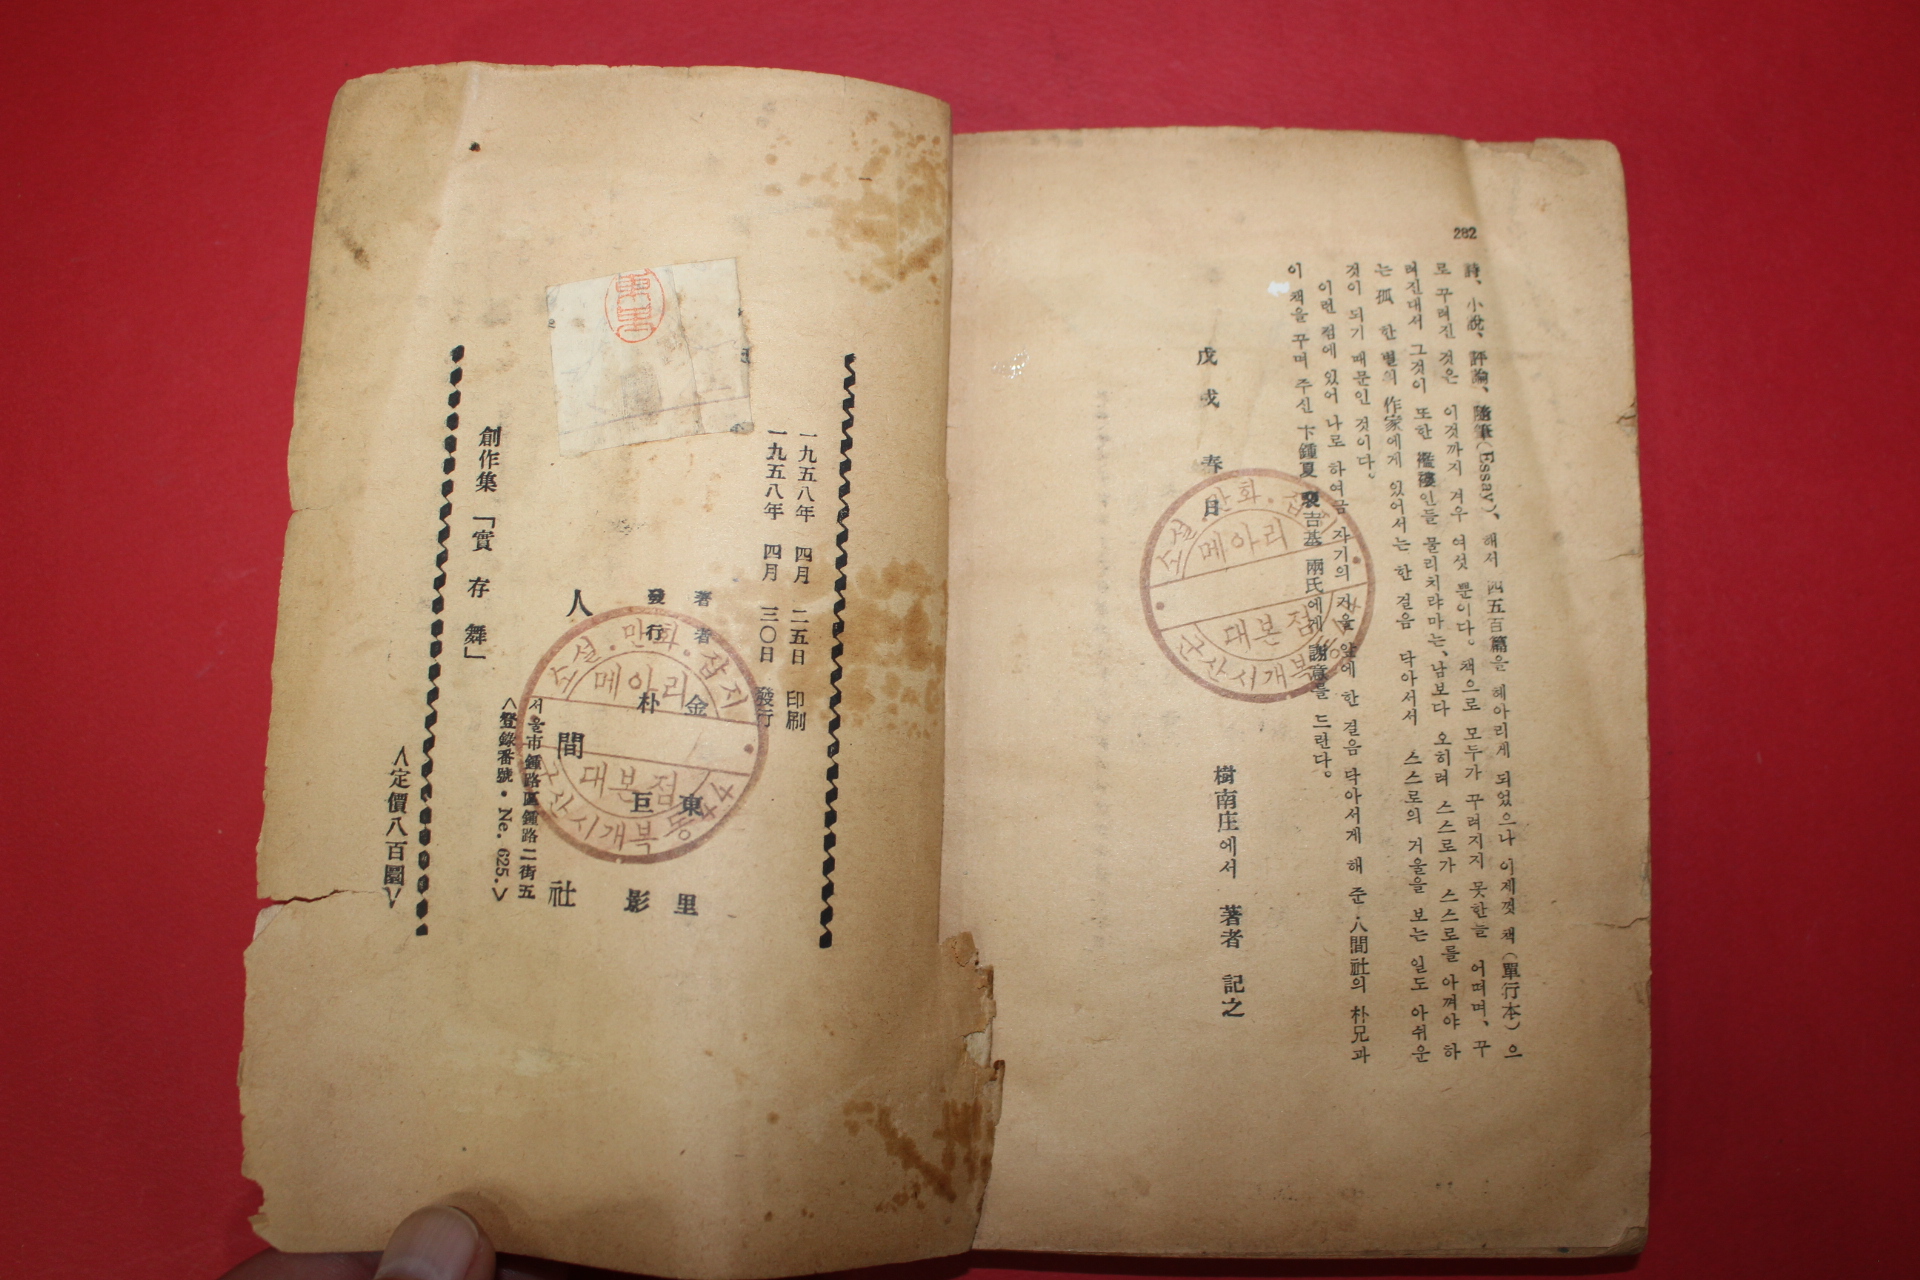 282
詩、小說、評論、隨筆(Essay)、해서 四五百篇을 헤아리게 되었으나 이제껏 책(單行本)으
로 꾸려진 것은 이것까지 겨우 여섯 뿐이다. 책으로 모두가 꾸려지지 못한들 어떠며、꾸
려진대서 그것이 또한 襤褸인들 물리치랴마는、남보다 오히려 스스로가 스스로를 아껴야 하
는 孤 한 별의 作家에게 있어서는 한 걸음 닥아서서 스스로의 거울을 보는 일도 아쉬운
것이 되기 때문인 것이다.
이런 점에 있어 나로 하여금 자기의 거울 앞에 한 걸음 닥아서게 해 준 人間社의 朴兄과
이 책을 꾸며 주신 卞鍾夏 裴吉基 兩氏에게 謝意를 드린다.
戊戌 春日
樹南庄에서 著者 記之
소설.만화.잡지
메아리
대본점
군산시개복동
一九五八年 四月 二五日 印刷
一九五八年 四月 三〇日 發行
著者 金東里
發行 朴巨影
人間社
서울市鍾路區鍾路二街五
<登錄番號・No. 625.>
創作集「實存舞」
<定價八百圜>
소설.만화.잡지
메아리
대본점
군산시개복동